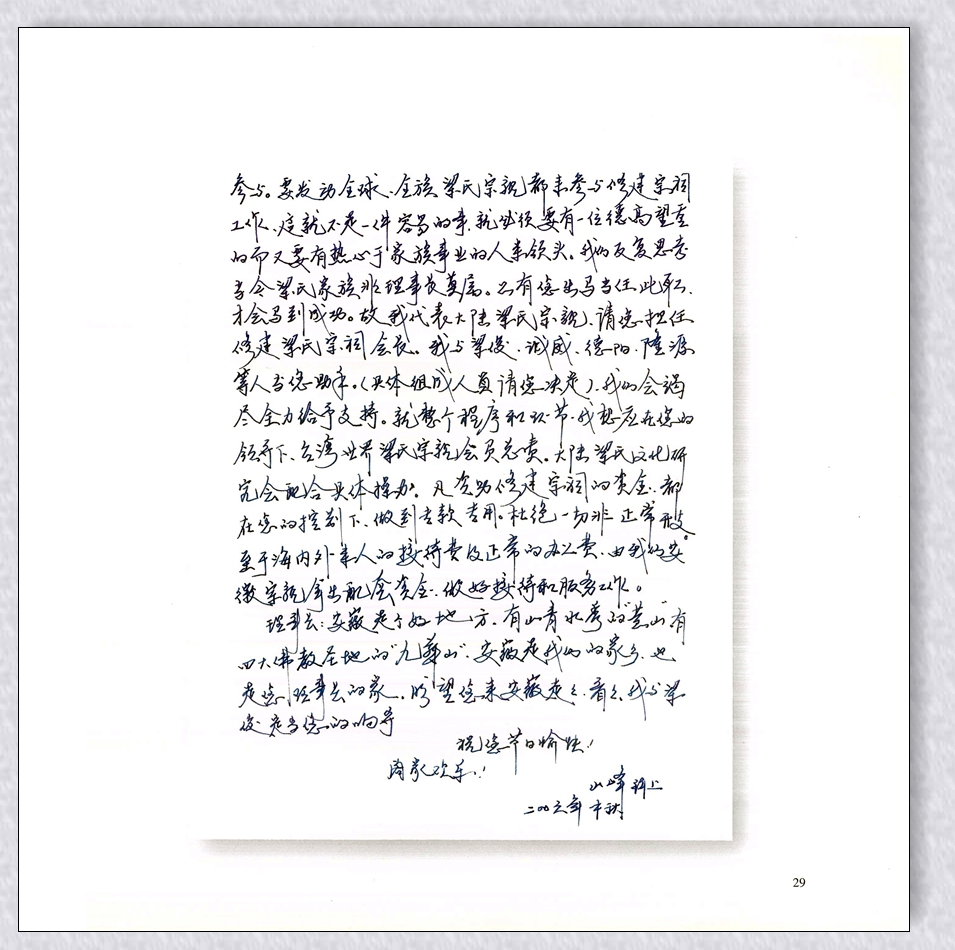 参与。要发动全球、全族梁氏宗亲都来参与修建宗祠
工作、这就不是一件容易的事、就必须要有一位德高望重
的而又要有热心于家族事业的人来领头。我们反复思考
当今梁氏家族非理事长莫属。只有您出马当任此职、
才会马到成功。故我代表大陆梁氏宗亲、请您担任
修建梁氏宗祠会长。我与梁俊、诚威、德阳、隆源
等人当您助手。(具体组成人员请您决定)、我们会竭
尽全力给予支持。就整个程序和环节、我想应在您的
领导下、台湾世界梁氏宗亲会员总责。大陆梁氏文化研
究会配合具体操办。凡资助修建宗祠的资金、都
在您的控制下、做到专款专用。杜绝一切非正常开支。
至于海内外来人的接待费及正常的办公费、由我们安
徽宗亲拿出配套资金、做好接待和服务工作。
理事长:安徽是个好地方、有山青水秀的"黄山"有
四大佛教圣地的"九华山"、安徽是我们的家乡、也
是您理事长的家、盼望您来安徽走走、看看、我与梁
俊是当您的响导
祝您节日愉快!
阖家欢乐!
山峰 拜上
二〇〇六年 中秋
29